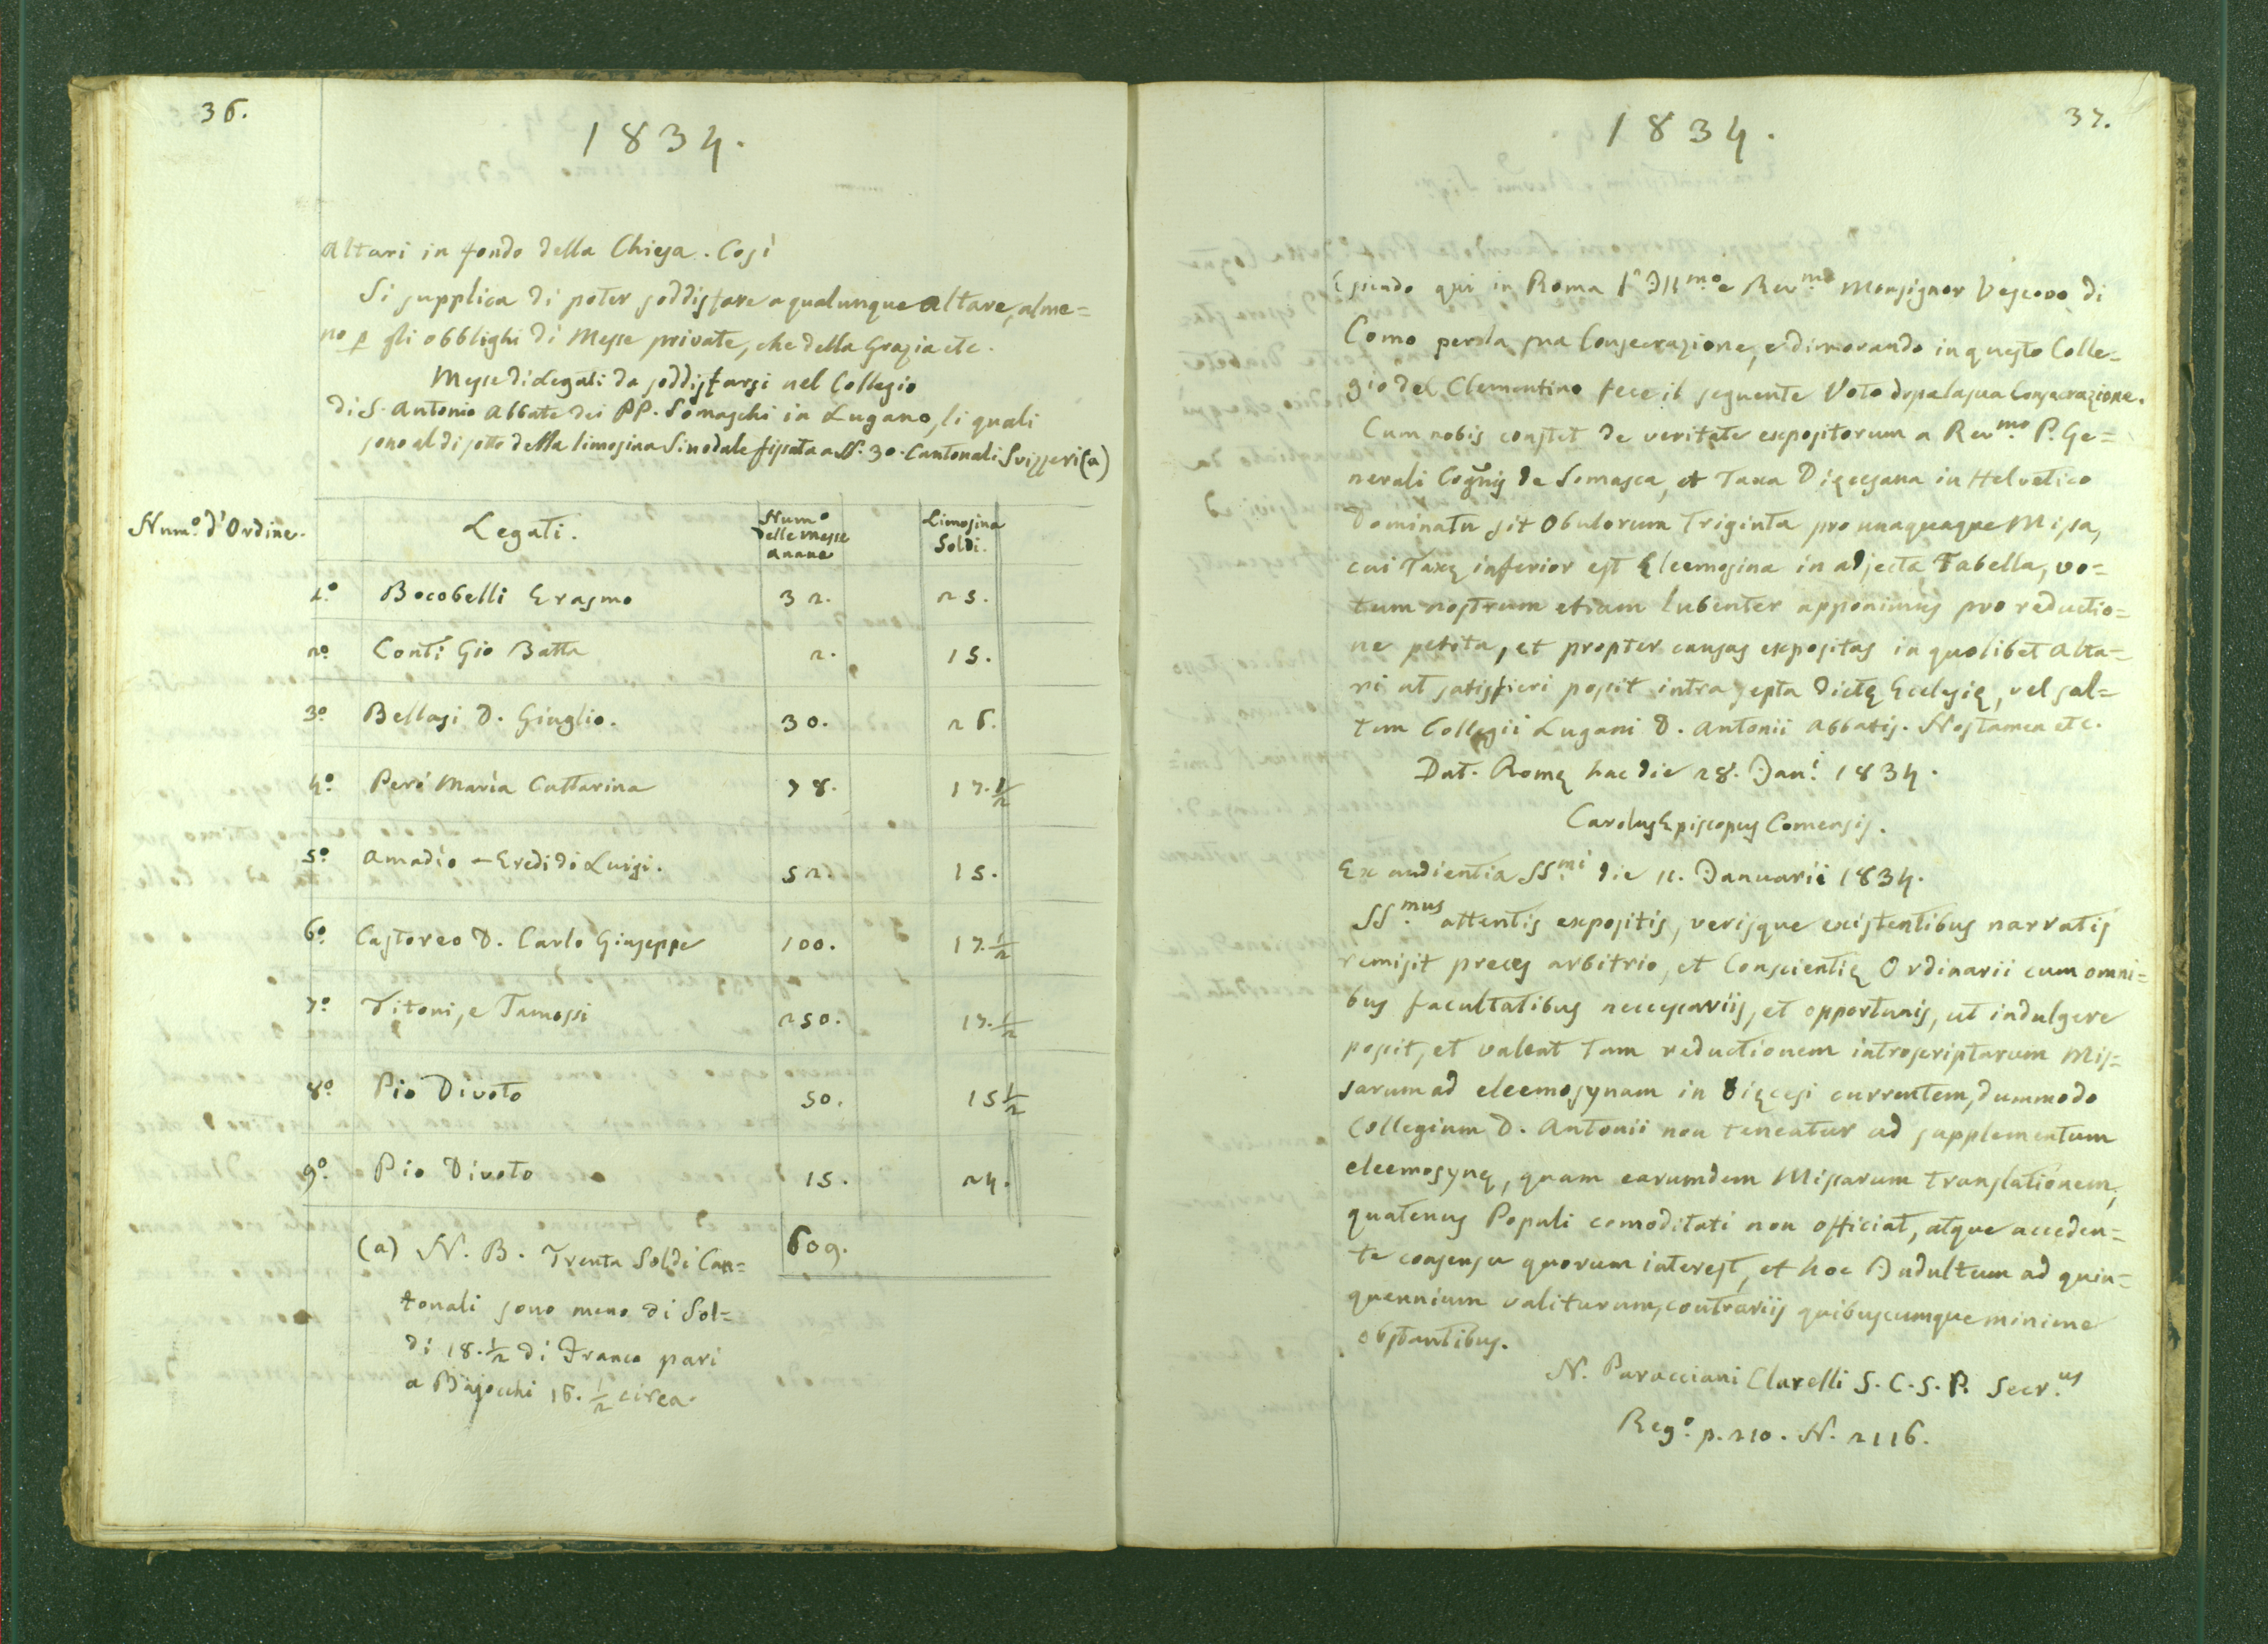 36.
1834.
Altari in fondo della Chiesa. Così
Si supplica di poter soddisfare a qualunque Altare, alme=
no p gli obblighi di Messe private, che della Grazia etc.
Messe di Legati da soddisfarsi nel Collegio
di S. Antonio Abbate dei PP. Somaschi in Lugano, li quali
sono al di sotto della limosina Sinodale fissata a ss. 30. Cantonali Svizzeri (a)
Num.o d'Ordine. Legati. Num.o delle messe annue Limosina Soldi.
1.o Bocobelli Erasmo 32. 25.
2.o Conti Gio Batta 2. 15.
3.o Bellasi D. Giuglio. 30. 26.
4.o Peri Maria Cattarina 78. 17.1/2
5.o Amadio - Eredi di Luigi. 52. 15.
6.o Castoreo D. Carlo Giuseppe 100. 17.1/2
7.o Titoni, e Tamossi 250. 17.1/2
8.o Pio Divoto 50. 15 1/2
9.o Pio Divoto 15. 24.
609.
(a) N. B. Trenta Soldi Can=
tonali sono meno di Sol=
di 18.1/2 di Franco pari
a Bajocchi 16. 1/2 circa.
37.
1834.
Essendo qui in Roma l'Ill.mo e Rev.mo Monsignor Vescovo di
Como per la sua Consecrazione, e dimorando in questo Colle=
gio del Clementino fece il seguente Voto dopo la sua Consecrazione.
Cum nobis constet de veritate expositorum a Rev.mo P. Ge=
nerali Cognis de Somasca, et Taxa Dięcesana in Helvetico
Dominatu sit Obulorum Triginta pro unaquaque Missa,
cui Taxę inferior est Eleemosina in adjecta Tabella, vo=
tum nostrum etiam lubenter apponimus pro reductio=
ne petita, et propter causas expositas in quolibet Alta=
ri ut satisfieri possit intra septa dictę Ecclesię, vel sal=
tem Collegii Lugani D. Antonii Abbatis. Nos tamen etc.
Dat. Romę hac die 28. Jan.i 1834.
Carolus Episcopus Comensis.
Ex audientia SS.mi die 11. Januarii 1834.
SS.mus attentis expositis, verisque existentibus narratis
remisit preces arbitrio, et Conscientię Ordinarii cum omni=
bus facultatibus necessariis, et opportunis, ut indulgere
possit, et valeat tam reductionem introscriptarum Mis=
sarum ad eleemosynam in Dięcesi currentem, dummodo
Collegium D. Antonii non teneatur ad supplementum
eleemosynę, quam earumdem Missarum translationem,
quatenus Populi comoditati non officiat, atque acceden=
te consensu quorum interest, et hoc Indultum ad quin=
quennium valiturum, contrariis quibuscumque minime
obstantibus.
N. Paracciani Clarelli S. C. S. P. Secr.us
Reg.o p. 210. N. 2116.